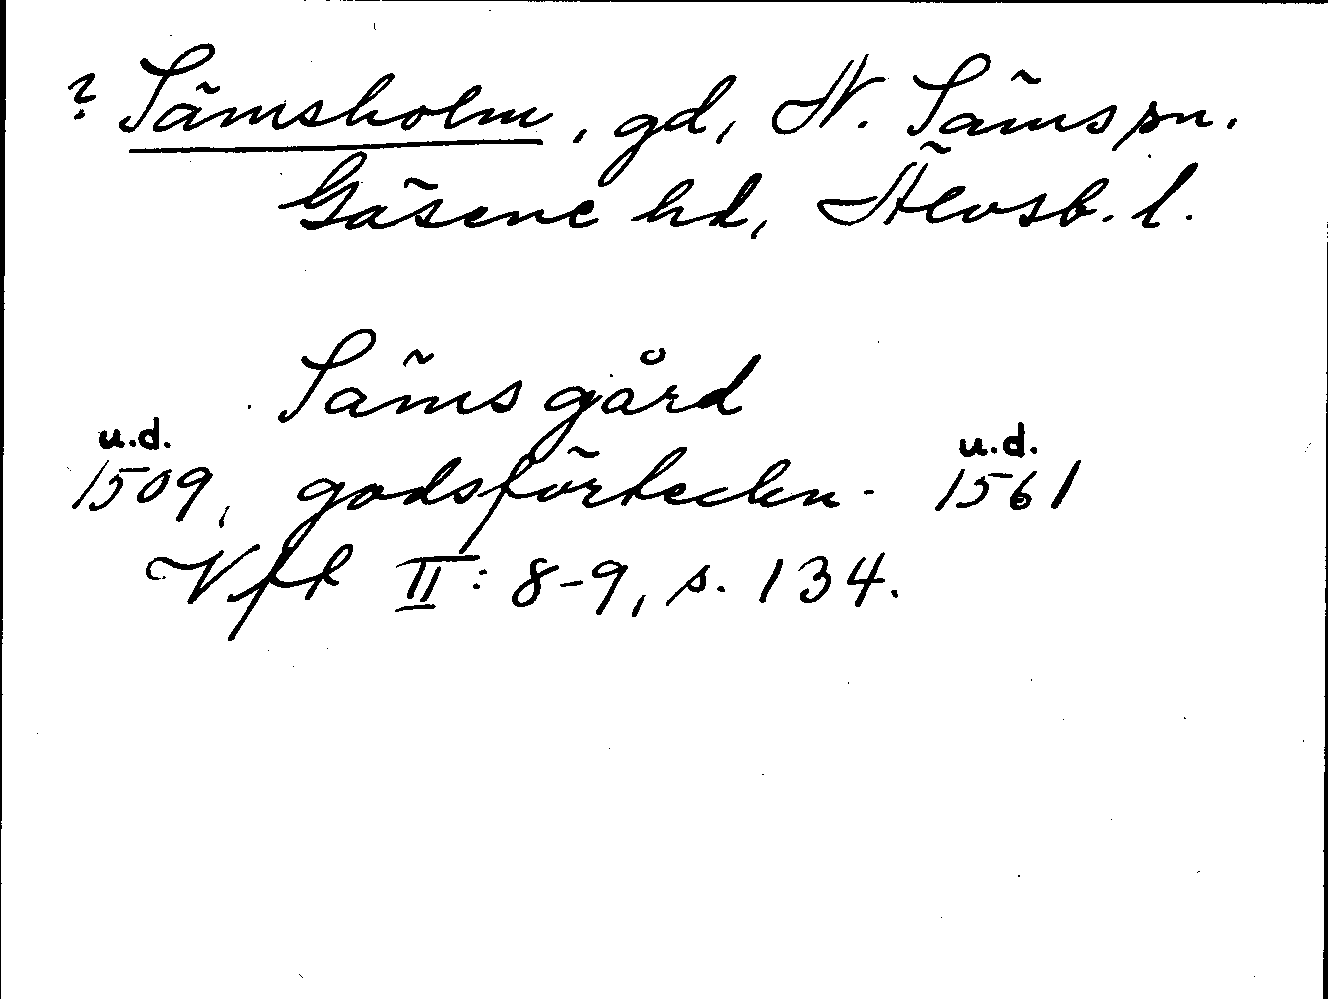 ? Sämsholm, gd, N. Säms sn.
Gäsene hd, Älvsb. l.
Säms gård
u.d. u.d.
1509, godsförteckn. 1561
Vft II: 8-9, s. 134.